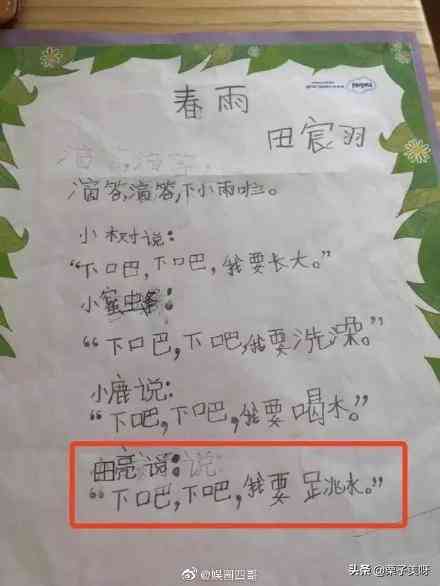 春雨
田宸羽
滴答,滴答,下小雨啦。
小树说:
“下吧,下吧,我要长大。”
小
“下吧,下吧,我要洗澡。”
小鹿说:
“下吧,下吧,我要喝水。”
田亮说:
“下吧,下吧,我要跳水。”
@娱圈四哥
头条 @栗子美呀